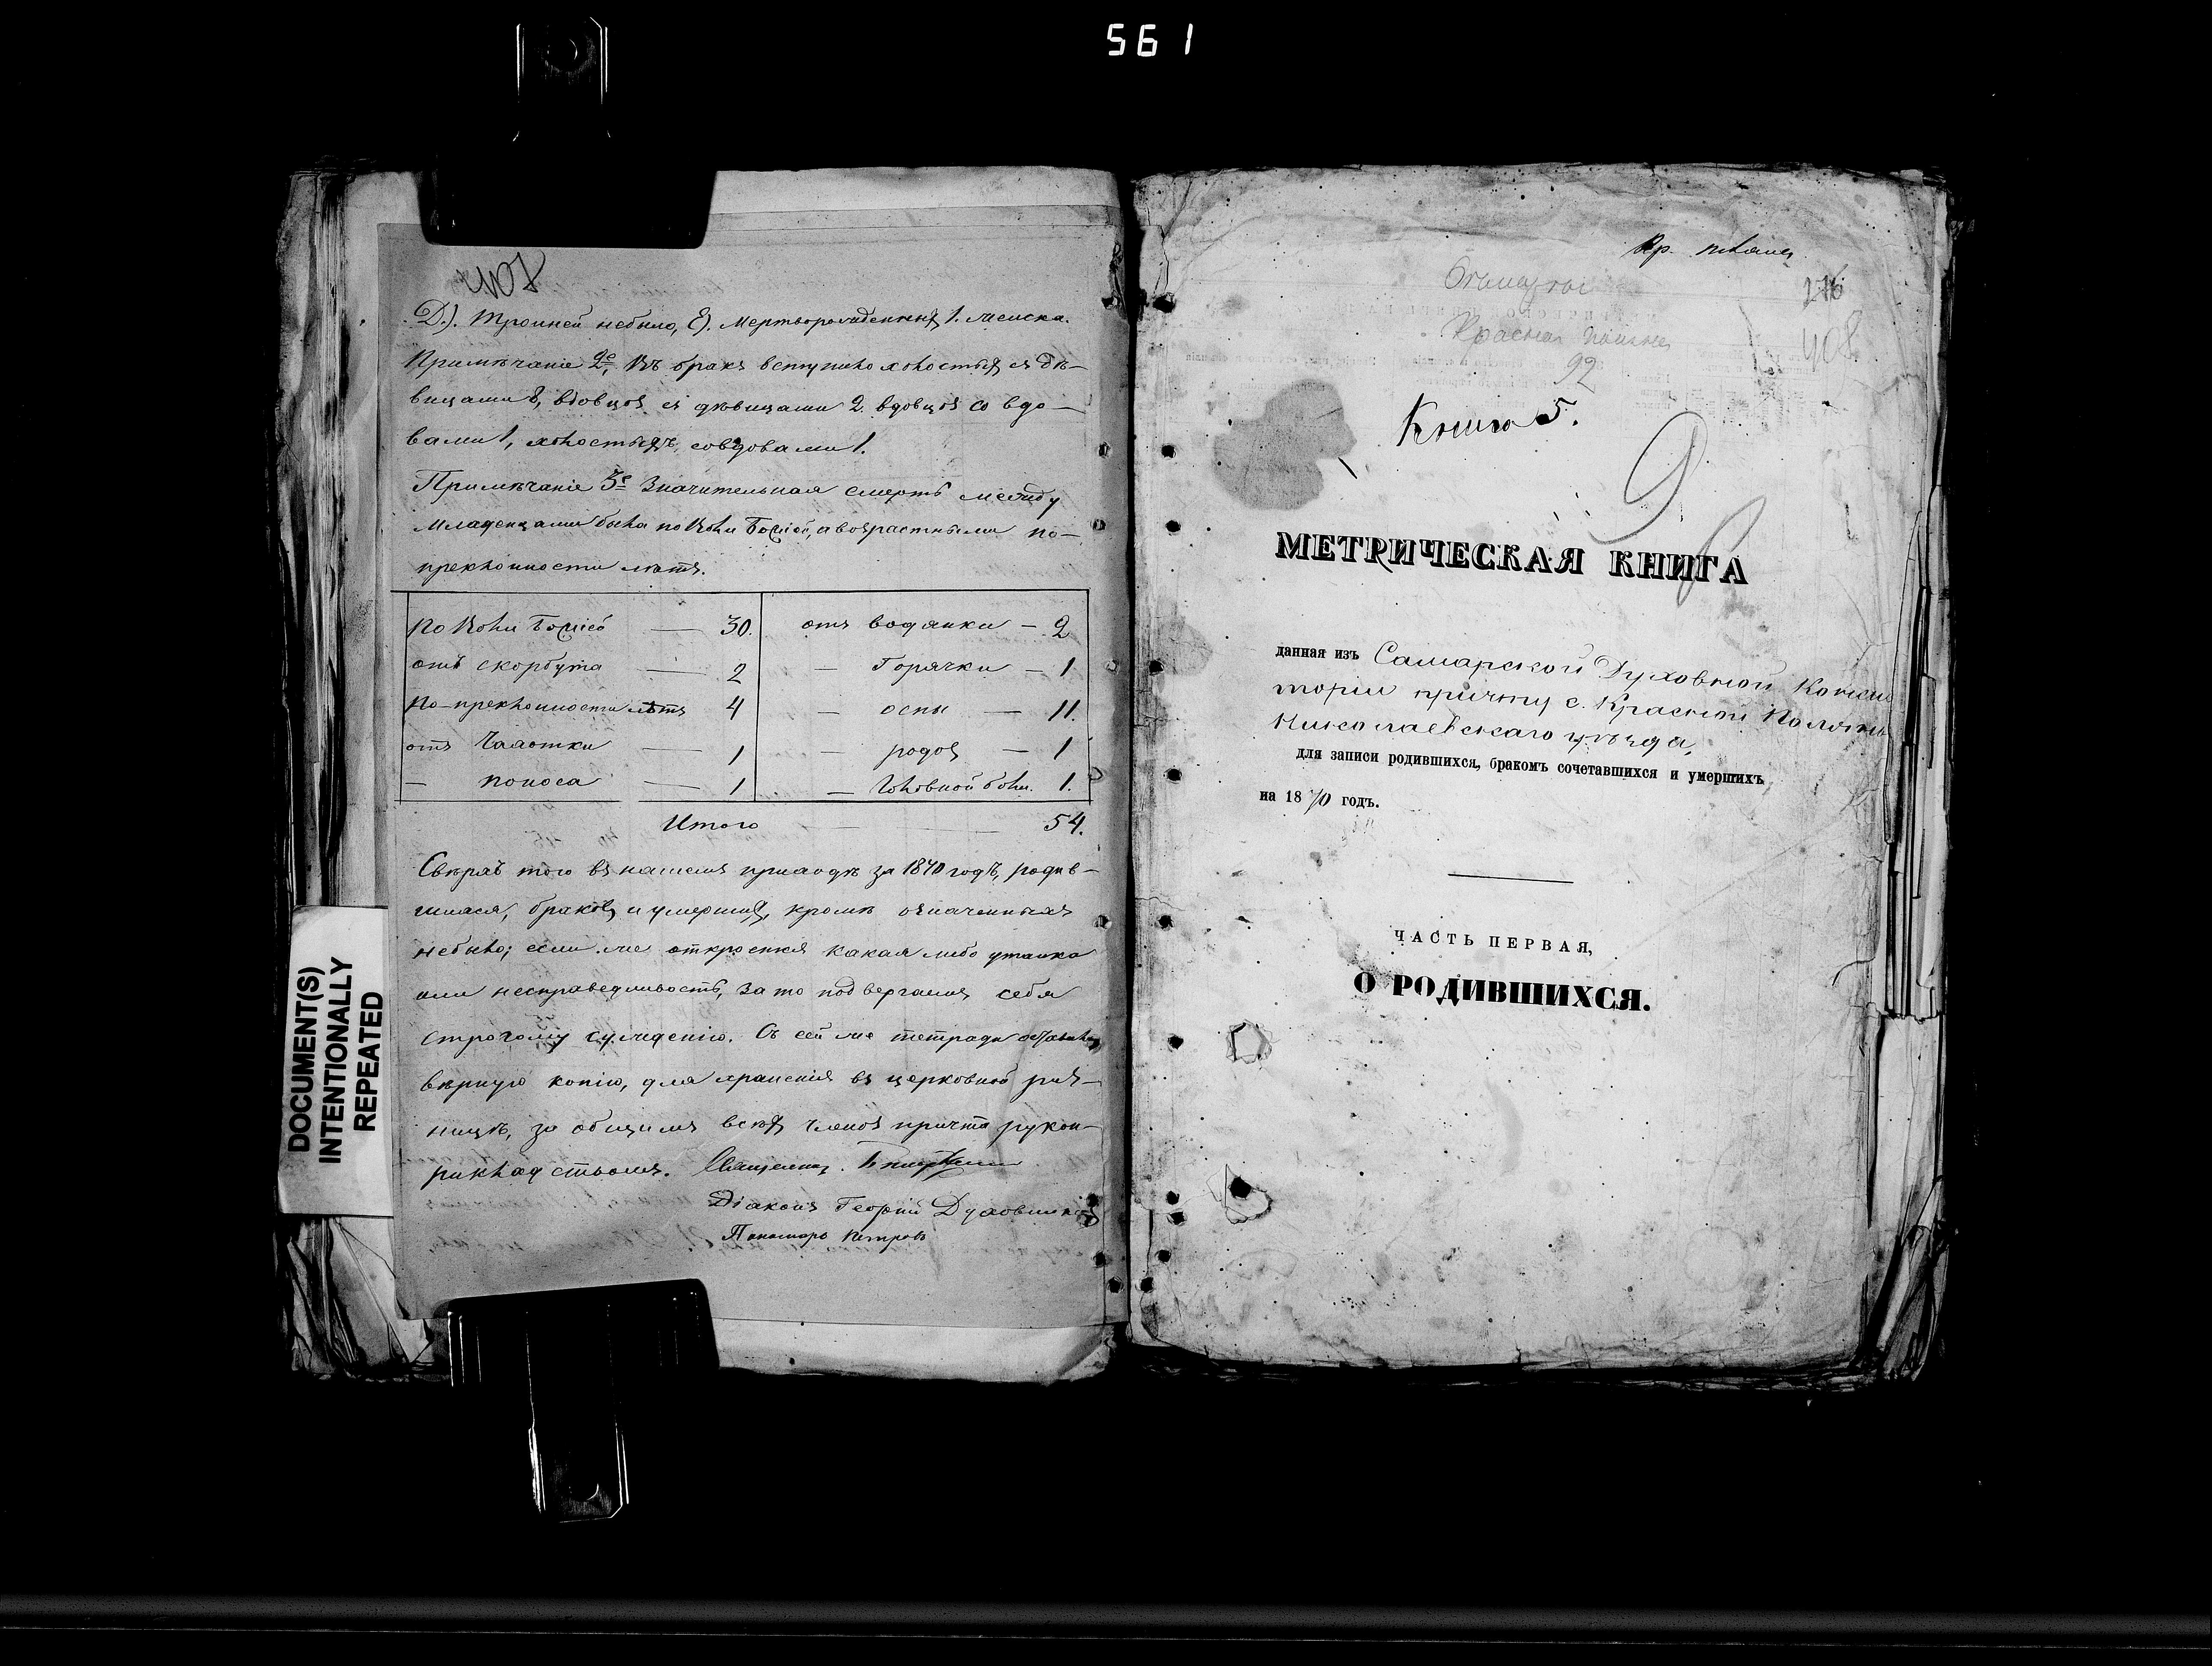 561
408
Д.). Тройней небыло, Е). Мертворожденныхъ 1. женска.
Примѣчаніе 2е. Въ бракъ вступило холостыхъ съ дѣ-
вицами 8, вдовцовъ съ дѣвицами 2. вдовцовъ со вдо-
вами 1, холостыхъ совдовами 1.
Примѣчаніе 3е Значительная смерть между
младенцами была по Воли Божіей, а возрастными по-
преклонности лѣтъ.
По Воли Божіей — 30. отъ водянки — 2
отъ скорбута — 2 — Горячки — 1
По-преклонности лѣтъ 4 — оспы — 11.
отъ Чахотки — 1 — родовъ — 1
— поноса — 1 — Головной боли. 1.
Итого — — 54.
Сверхъ того въ нашемъ приходѣ за 1870 годъ, родив-
шихся, браковъ и умершихъ, кромѣ означенныхъ
небыло; если же откроется какая либо утайка
или несправедливость, за то подвергаемъ себя
строгому сужденію. Съ сей же тетради оставили
вѣрную копію, для храненія въ церковной риз-
ницѣ, за общимъ всѣхъ членовъ причта рукоп-
рикладствомъ. Священникъ
Діаконъ Георгій Духовниковъ
Пономарь Петровъ
DOCUMENT(S)
INTENTIONALLY
REPEATED
Кр. поляна
276
Красная поляна
408
92
Книга 5.
9
МЕТРИЧЕСКАЯ КНИГА
данная изъ Самарской Духовной Консис
торіи причту с. Красной Поляны
Николаевскаго уѣзда,
для записи родившихся, бракомъ сочетавшихся и умершихъ
на 1870 годъ.
ЧАСТЬ ПЕРВАЯ,
О РОДИВШИХСЯ.